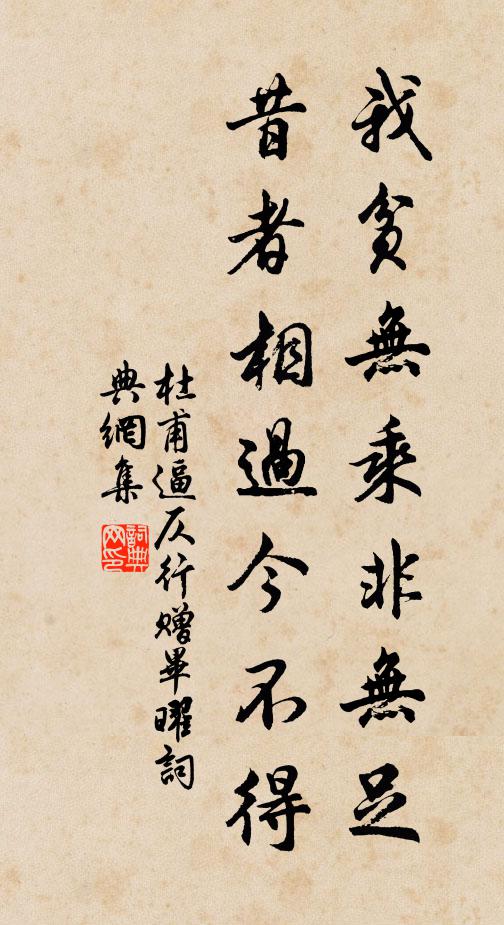 我貧無乘非無足
昔者相過今不得
杜甫逼仄行贈畢曜詞
典網集
詞典
网印